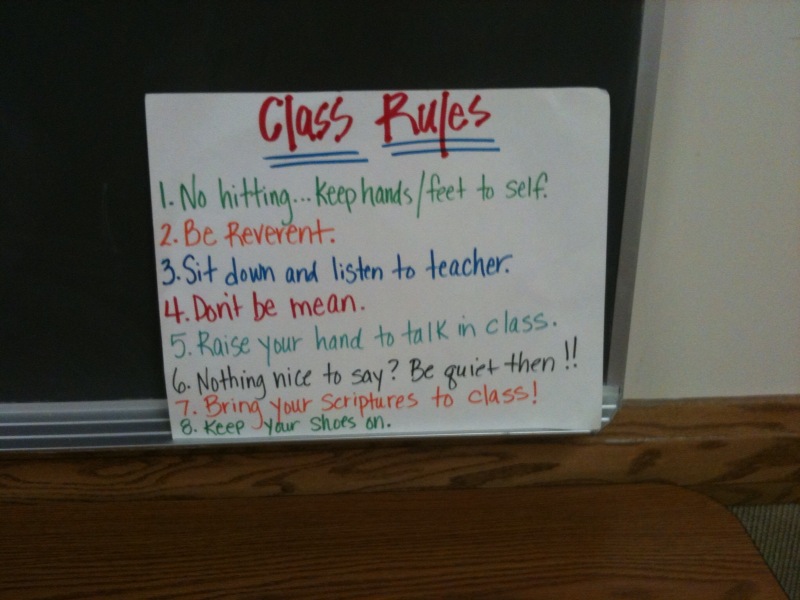 Class Rules
1. No hitting... Keep hands/feet to self.
2. Be Reverent.
3. Sit down and listen to teacher.
4. Don't be mean.
5. Raise your hand to talk in class.
6. Nothing nice to say? Be quiet then!!
7. Bring your Scriptures to class!
8. Keep your shoes on.